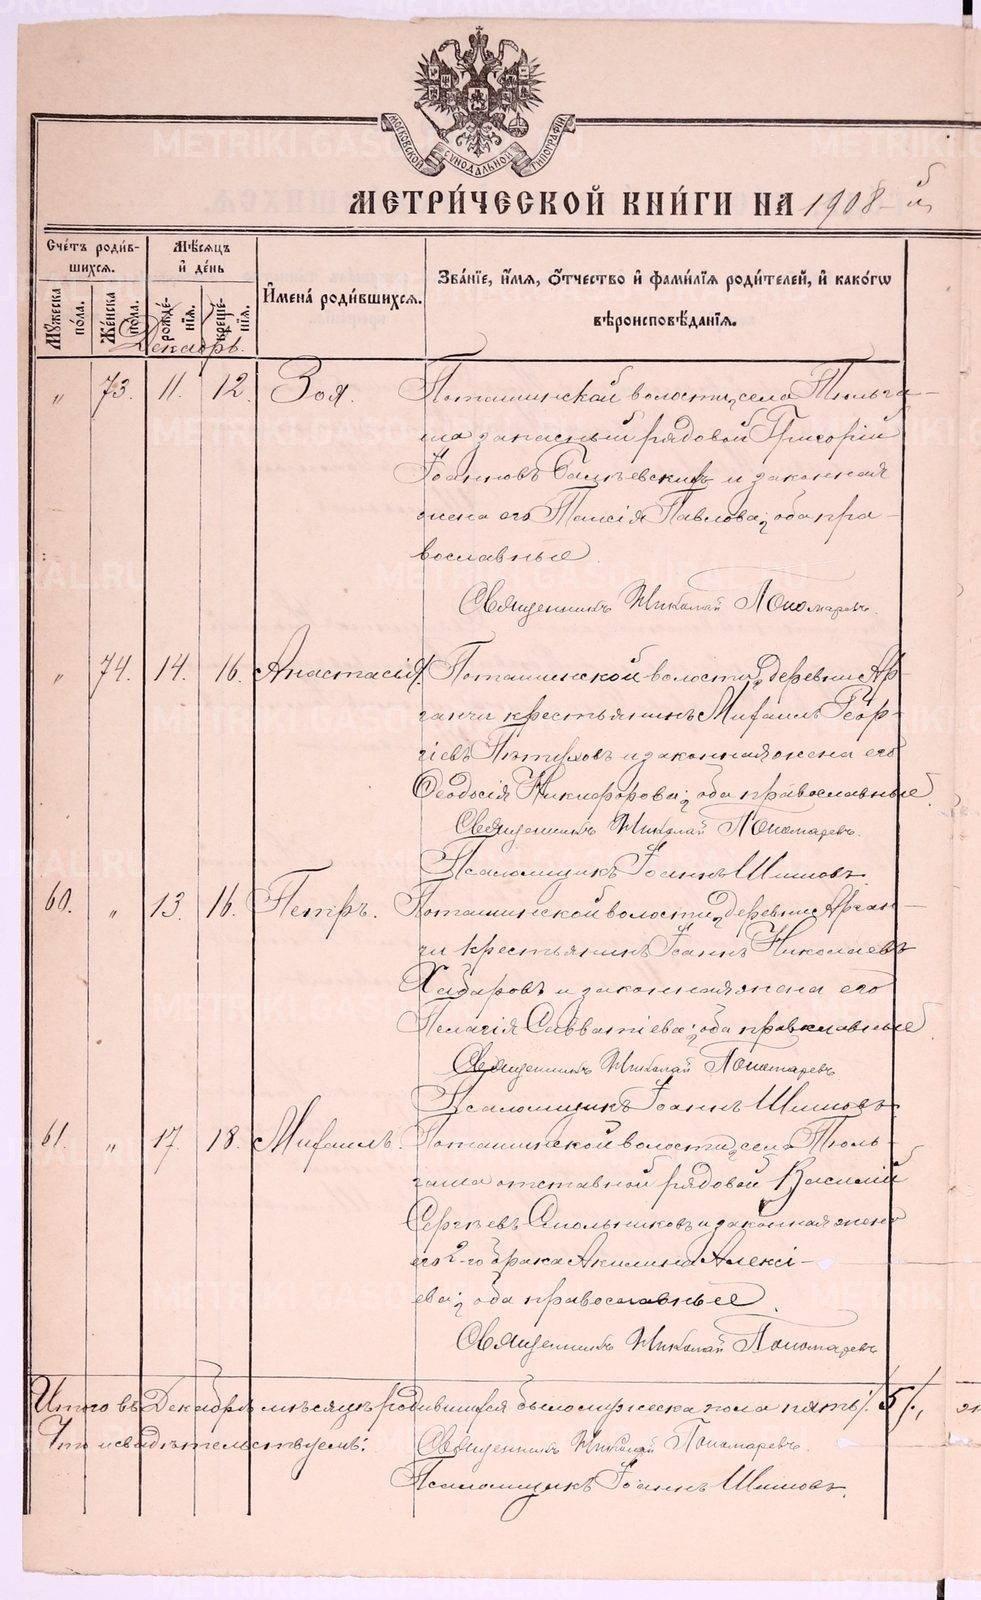 МОСКОВСКОЙ СѴНОДАЛЬНОЙ ТИПОГРАФІИ
МЕТРИ́ЧЕСКОЙ КНИ́ГИ НА 1908-й
Сче́тъ роди́вшихсѧ.
Мѣ́сѧцъ и́ де́нь
И҆мена̀ роди́вшихсѧ.
Зва́нїе, и҆́мѧ, ѻ҆́тчество и҆ фами́лїѧ роди́телей, и҆ како́гѡ
вѣроисповѣ́данїѧ.
Мꙋ́жеска по́ла.
Же́нска по́ла.
рожде́нїѧ.
креще́нїѧ.
Декабрь.
" 73. 11. 12. Зоя. Поташинской волости, села Тюльга-
ша запасный рядовой Григорій
Іоанновъ и законная
жена его Таисія Павлова; оба пра-
вославные.
Священникъ Николай Пономаревъ.
" 74. 14. 16. Анастасія. Поташинской волости, деревни Ар-
ганчи крестьянинъ Михаилъ Геор-
гіевъ Пѣтуховъ и законная жена его
Ѳеодосія Никифорова; оба православные.
Священникъ Николай Пономаревъ.
Псаломщикъ Іоаннъ Шишовъ.
60. " 13. 16. Петръ. Поташинской волости, деревни Арган-
чи крестьянинъ Іоаннъ Николаевъ
Хабаровъ и законная жена его
Пелагія Савватіева; оба православные
Священникъ Николай Пономаревъ
Псаломщикъ Іоаннъ Шишовъ
61. " 17. 18. Михаилъ. Поташинской волости, села Тюль-
гаша отставной рядовой Василій
Сергѣевъ Смольниковъ и законная жена
его 2-го брака Акилина Алексі-
ева; оба православные.
Священникъ Николай Пономаревъ
Итого въ Декабрѣ мѣсяцѣ родившихся было мужеска пола пять /. 5 /.,
Что и свидѣтельствуемъ: Священникъ Николай Пономаревъ.
Псаломщикъ Іоаннъ Шишовъ.